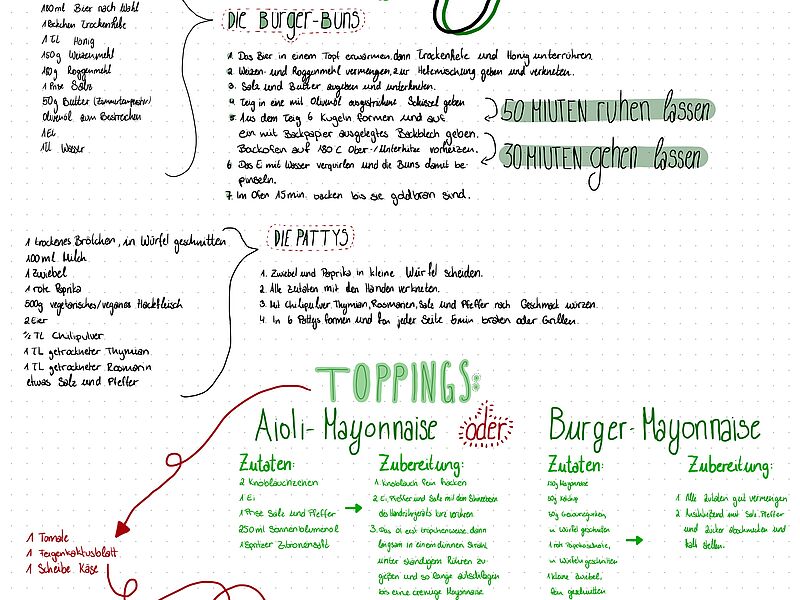 100ml Bier nach Wahl
1 Beckchen Trockenhefe
1 TL Honig
150g Weizenmehl
180g Roggenmehl
1 Prise Salz
50g Butter (Zimmertemperatur)
Olivenöl zum Bestreichen
1 Ei
1L Wasser
DIE BURGER-BUNS
1. Das Bier in einem Topf erwärmen, dann Trockenhefe und Honig unterrühren.
2. Weizen- und Roggenmehl vermengen, zur Hefemischung geben und verkneten.
3. Salz und Butter zugeben und unterkneten.
4. Teig in eine mit Olivenöl ausgestrichene Schüssel geben
5. Aus dem Teig 6 Kugeln formen und auf
ein mit Backpapier ausgelegtes Backblech geben.
Backofen auf 180 C Ober-/Unterhitze vorheizen.
6. Das E mit Wasser verquirlen und die Buns damit be-
pinseln.
7. Im Ofen 15min. backen bis sie goldbran sind.
50 MIUTEN ruhen lassen
30 MIUTEN gehen lassen
1 trockenes Brötchen, in Würfel geschnitten
100ml Milch
1 Zwiebel
1 rote Paprika
500g vegetarisches/veganes Hackfleisch
2 Eier
½ TL Chilipulver
1 TL getrockneter Thymian
1 TL getrockneter Rosmarin
etwas Salz und Pfeffer
DIE PATTYS
1. Zwiebel und Paprika in kleine Würfel scheiden.
2. Alle Zutaten mit den Händen verkneten.
3. Mit Chilipulver, Thymian, Rosmarien, Salz und Pfeffer nach Geschmack würzen.
4. In 6 Pattys formen und von jeder Seite 5min braten oder Grillen.
TOPPINGS:
Aioli-Mayonnaise oder Burger-Mayonnaise
Zutaten:
2 Knoblauchzehen
1 Ei
1 Prise Salz und Pfeffer
250ml Sonnenblumenöl
1 Spritzer Zitronensaft
Zubereitung:
1. Knoblauch fein hacken
2. Ei, Pfeffer und Salz mit dem Schneebesen
des Handrührgeräts kurz verrühren
3. Das Öl erst tröpchenweise, dann
langsam in einem dünnen Strahl
unter ständigem Rühren zu-
gießen und so lange aufschlagen
bis eine cremige Mayonnaise
Zutaten:
150g Mayonnaise
50g Ketchup
50g Gewürzgurken,
in Würfel geschnitten
1 rote Paprikaschote,
in Würfeln geschnitten
1 kleine Zwiebel,
fein geschnitten
Zubereitung:
1. Alle Zutaten gut vermengen
2. Anschließend mit Salz, Pfeffer
und Zucker abschmecken und
kalt stellen.
1 Tomate
1 Feigenkaktusblatt
1 Scheibe Käse